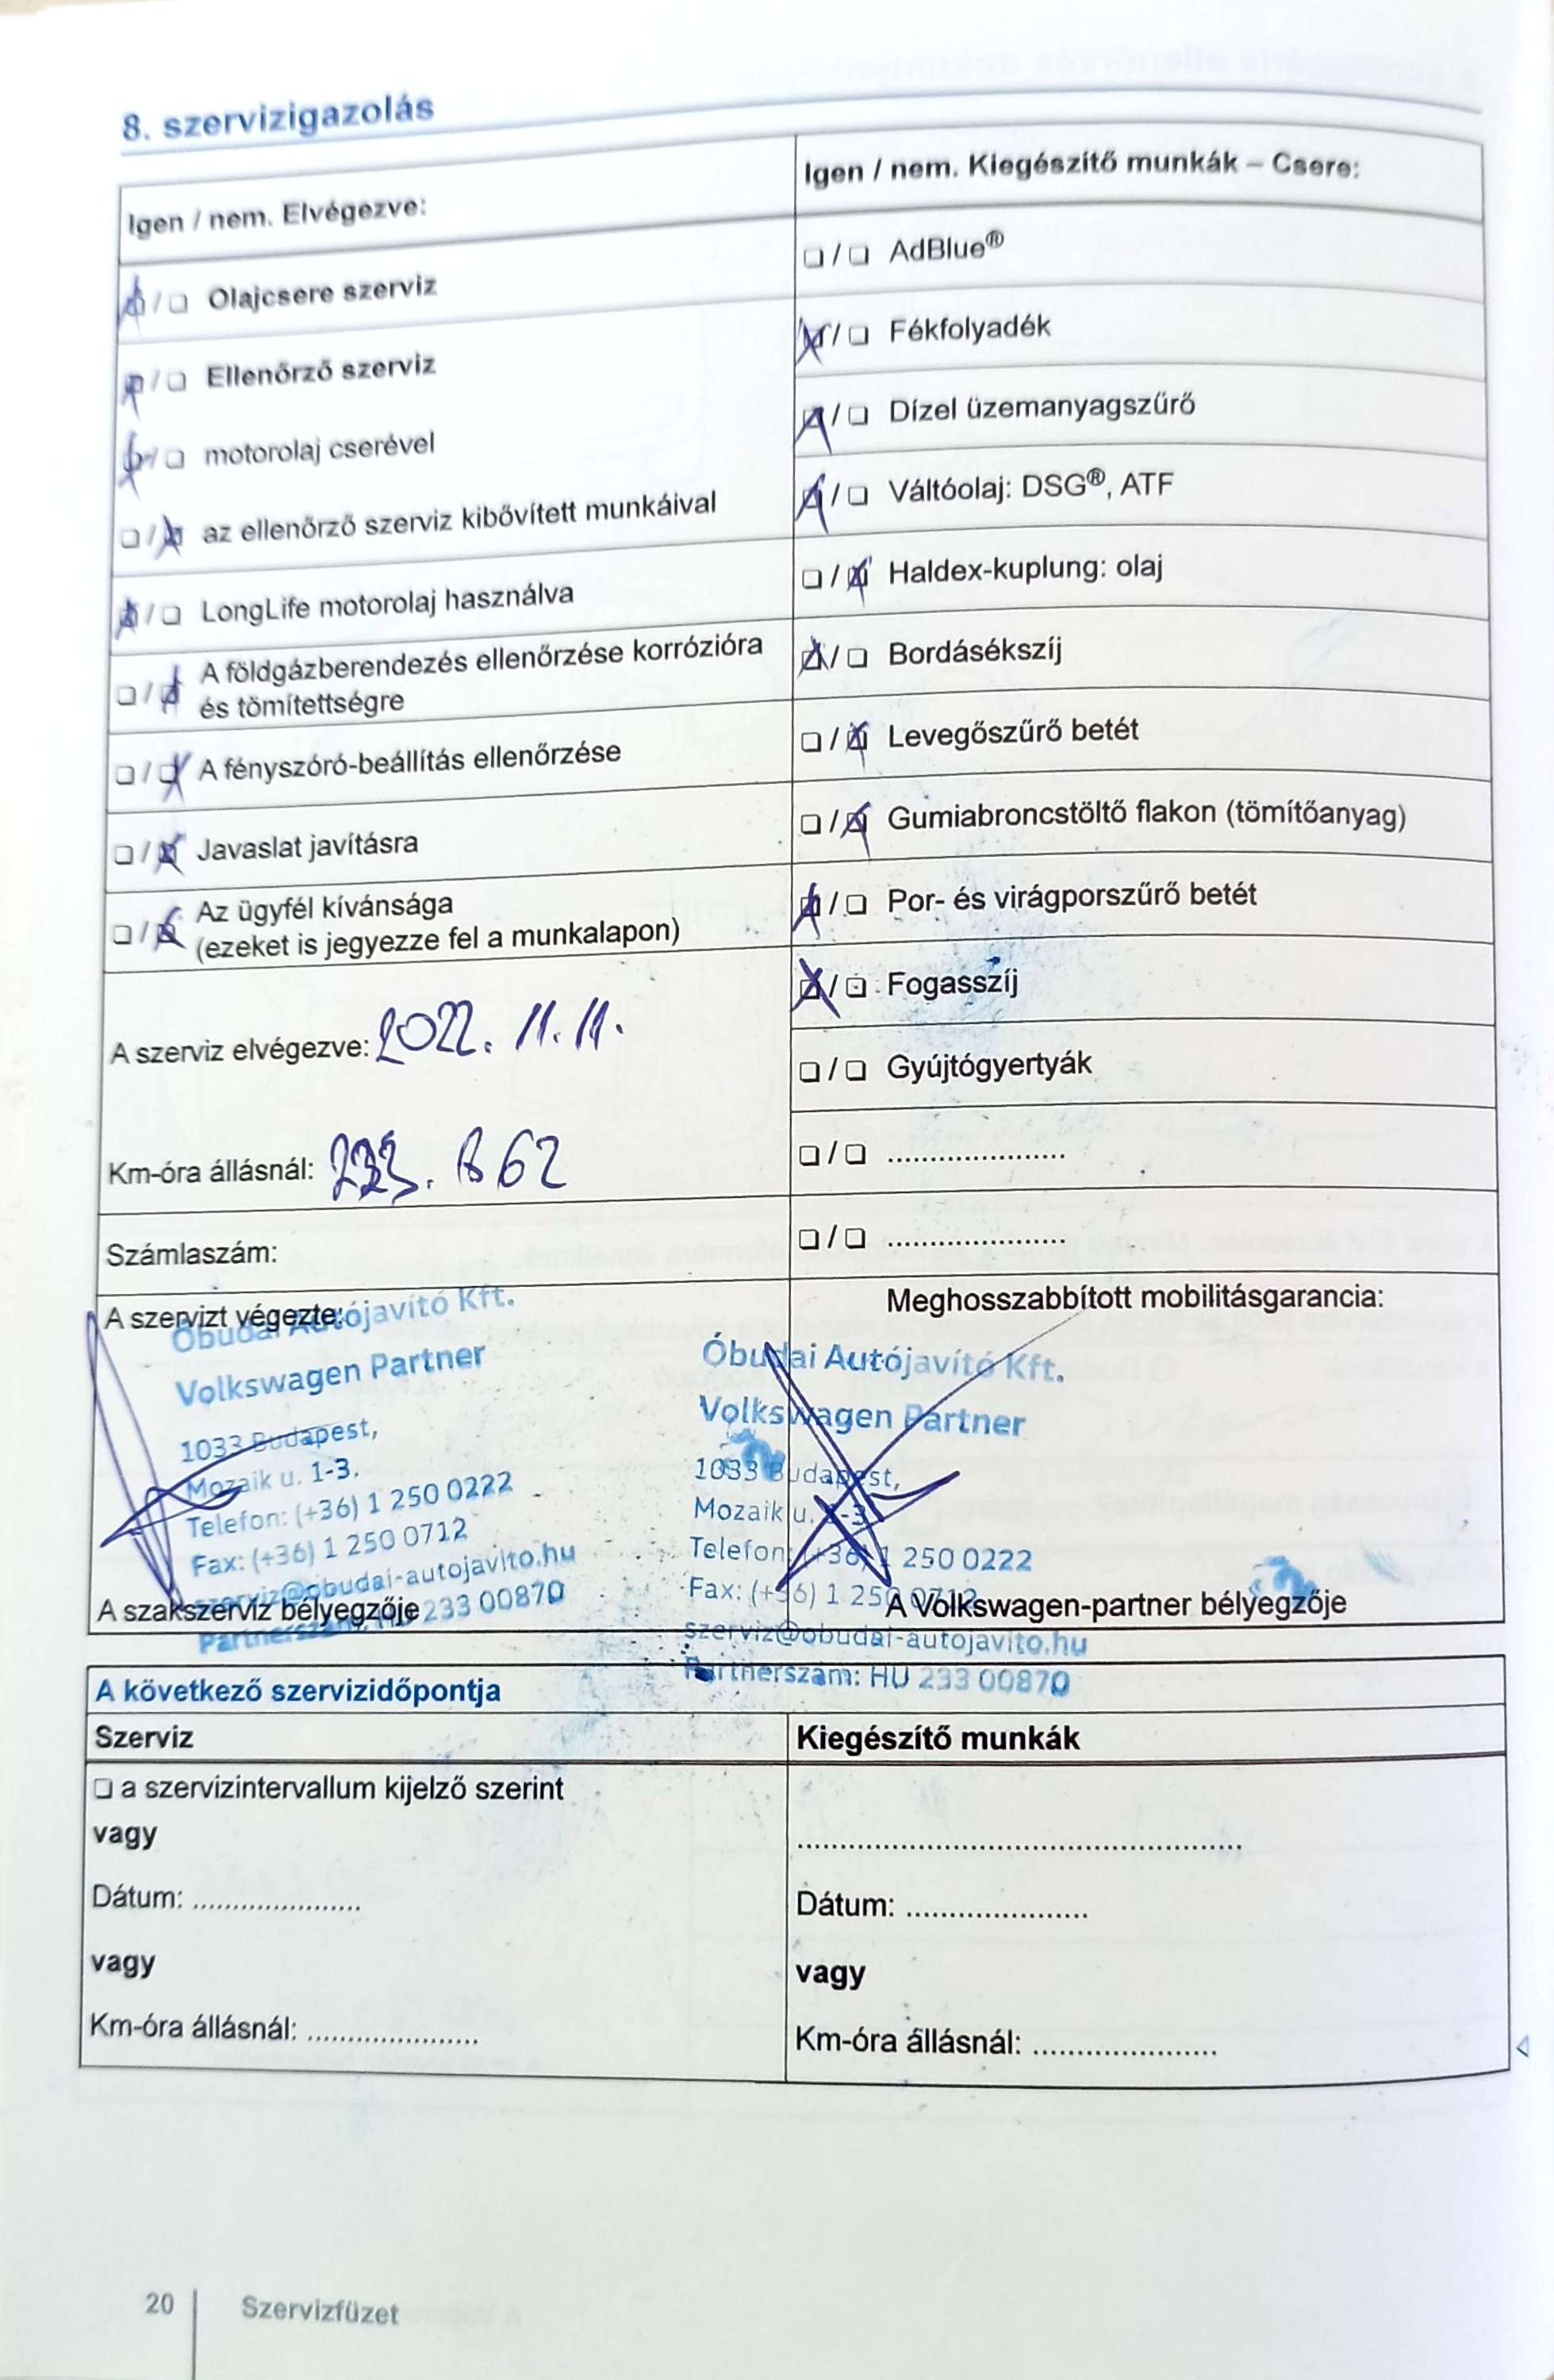 8. szervizigazolás
Igen / nem. Elvégezve:
❏ / ❏ Olajcsere szerviz
❏ / ❏ Ellenőrző szerviz
❏ / ❏ motorolaj cserével
❏ / ❏ az ellenőrző szerviz kibővített munkáival
❏ / ❏ LongLife motorolaj használva
❏ / ❏ A földgázberendezés ellenőrzése korrózióra
és tömítettségre
❏ / ❏ A fényszóró-beállítás ellenőrzése
❏ / ❏ Javaslat javításra
❏ / ❏ Az ügyfél kívánsága
(ezeket is jegyezze fel a munkalapon)
A szerviz elvégezve: 2022. 11. 11.
Km-óra állásnál:
Számlaszám:
Igen / nem. Kiegészítő munkák – Csere:
❏ / ❏ AdBlue®
❏ / ❏ Fékfolyadék
❏ / ❏ Dízel üzemanyagszűrő
❏ / ❏ Váltóolaj: DSG®, ATF
❏ / ❏ Haldex-kuplung: olaj
❏ / ❏ Bordásékszíj
❏ / ❏ Levegőszűrő betét
❏ / ❏ Gumiabroncstöltő flakon (tömítőanyag)
❏ / ❏ Por- és virágporszűrő betét
❏ / ❏ Fogasszíj
❏ / ❏ Gyújtógyertyák
❏ / ❏ .....................
❏ / ❏ .....................
A szervizt végezte:
Óbudai Autójavító Kft.
Volkswagen Partner
1033 Budapest,
Mozaik u. 1-3.
Telefon: (+36) 1 250 0222
Fax: (+36) 1 250 0712
szerviz@obudai-autojavito.hu
Partnerszám: HU 233 00870
A szakszerviz bélyegzője
Meghosszabbított mobilitásgarancia:
Óbudai Autójavító Kft.
Volkswagen Partner
1033 Budapest,
Mozaik u. 1-3.
Telefon: (+36) 1 250 0222
Fax: (+36) 1 250 0712
szerviz@obudai-autojavito.hu
Partnerszám: HU 233 00870
A Volkswagen-partner bélyegzője
A következő szervizidőpontja
Szerviz
❏ a szervizintervallum kijelző szerint
vagy
Dátum: .....................
vagy
Km-óra állásnál: .....................
Kiegészítő munkák
.....................
Dátum: .....................
vagy
Km-óra állásnál: .....................
20 Szervizfüzet